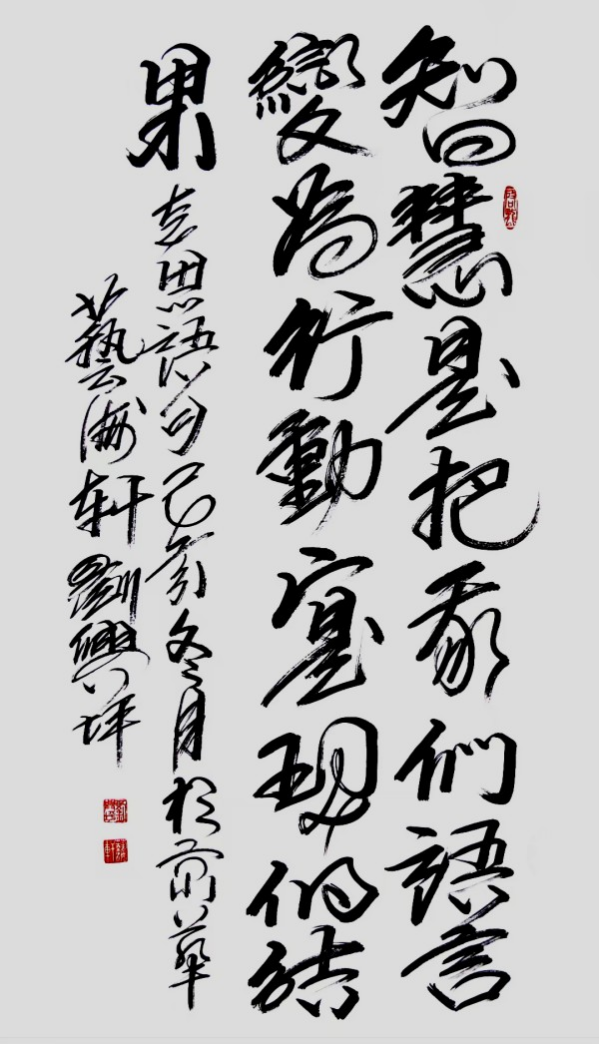 智慧是把我們語言
變為行動寔現的結
果 思語句己亥冬月於京華
藝海轩劉興坪